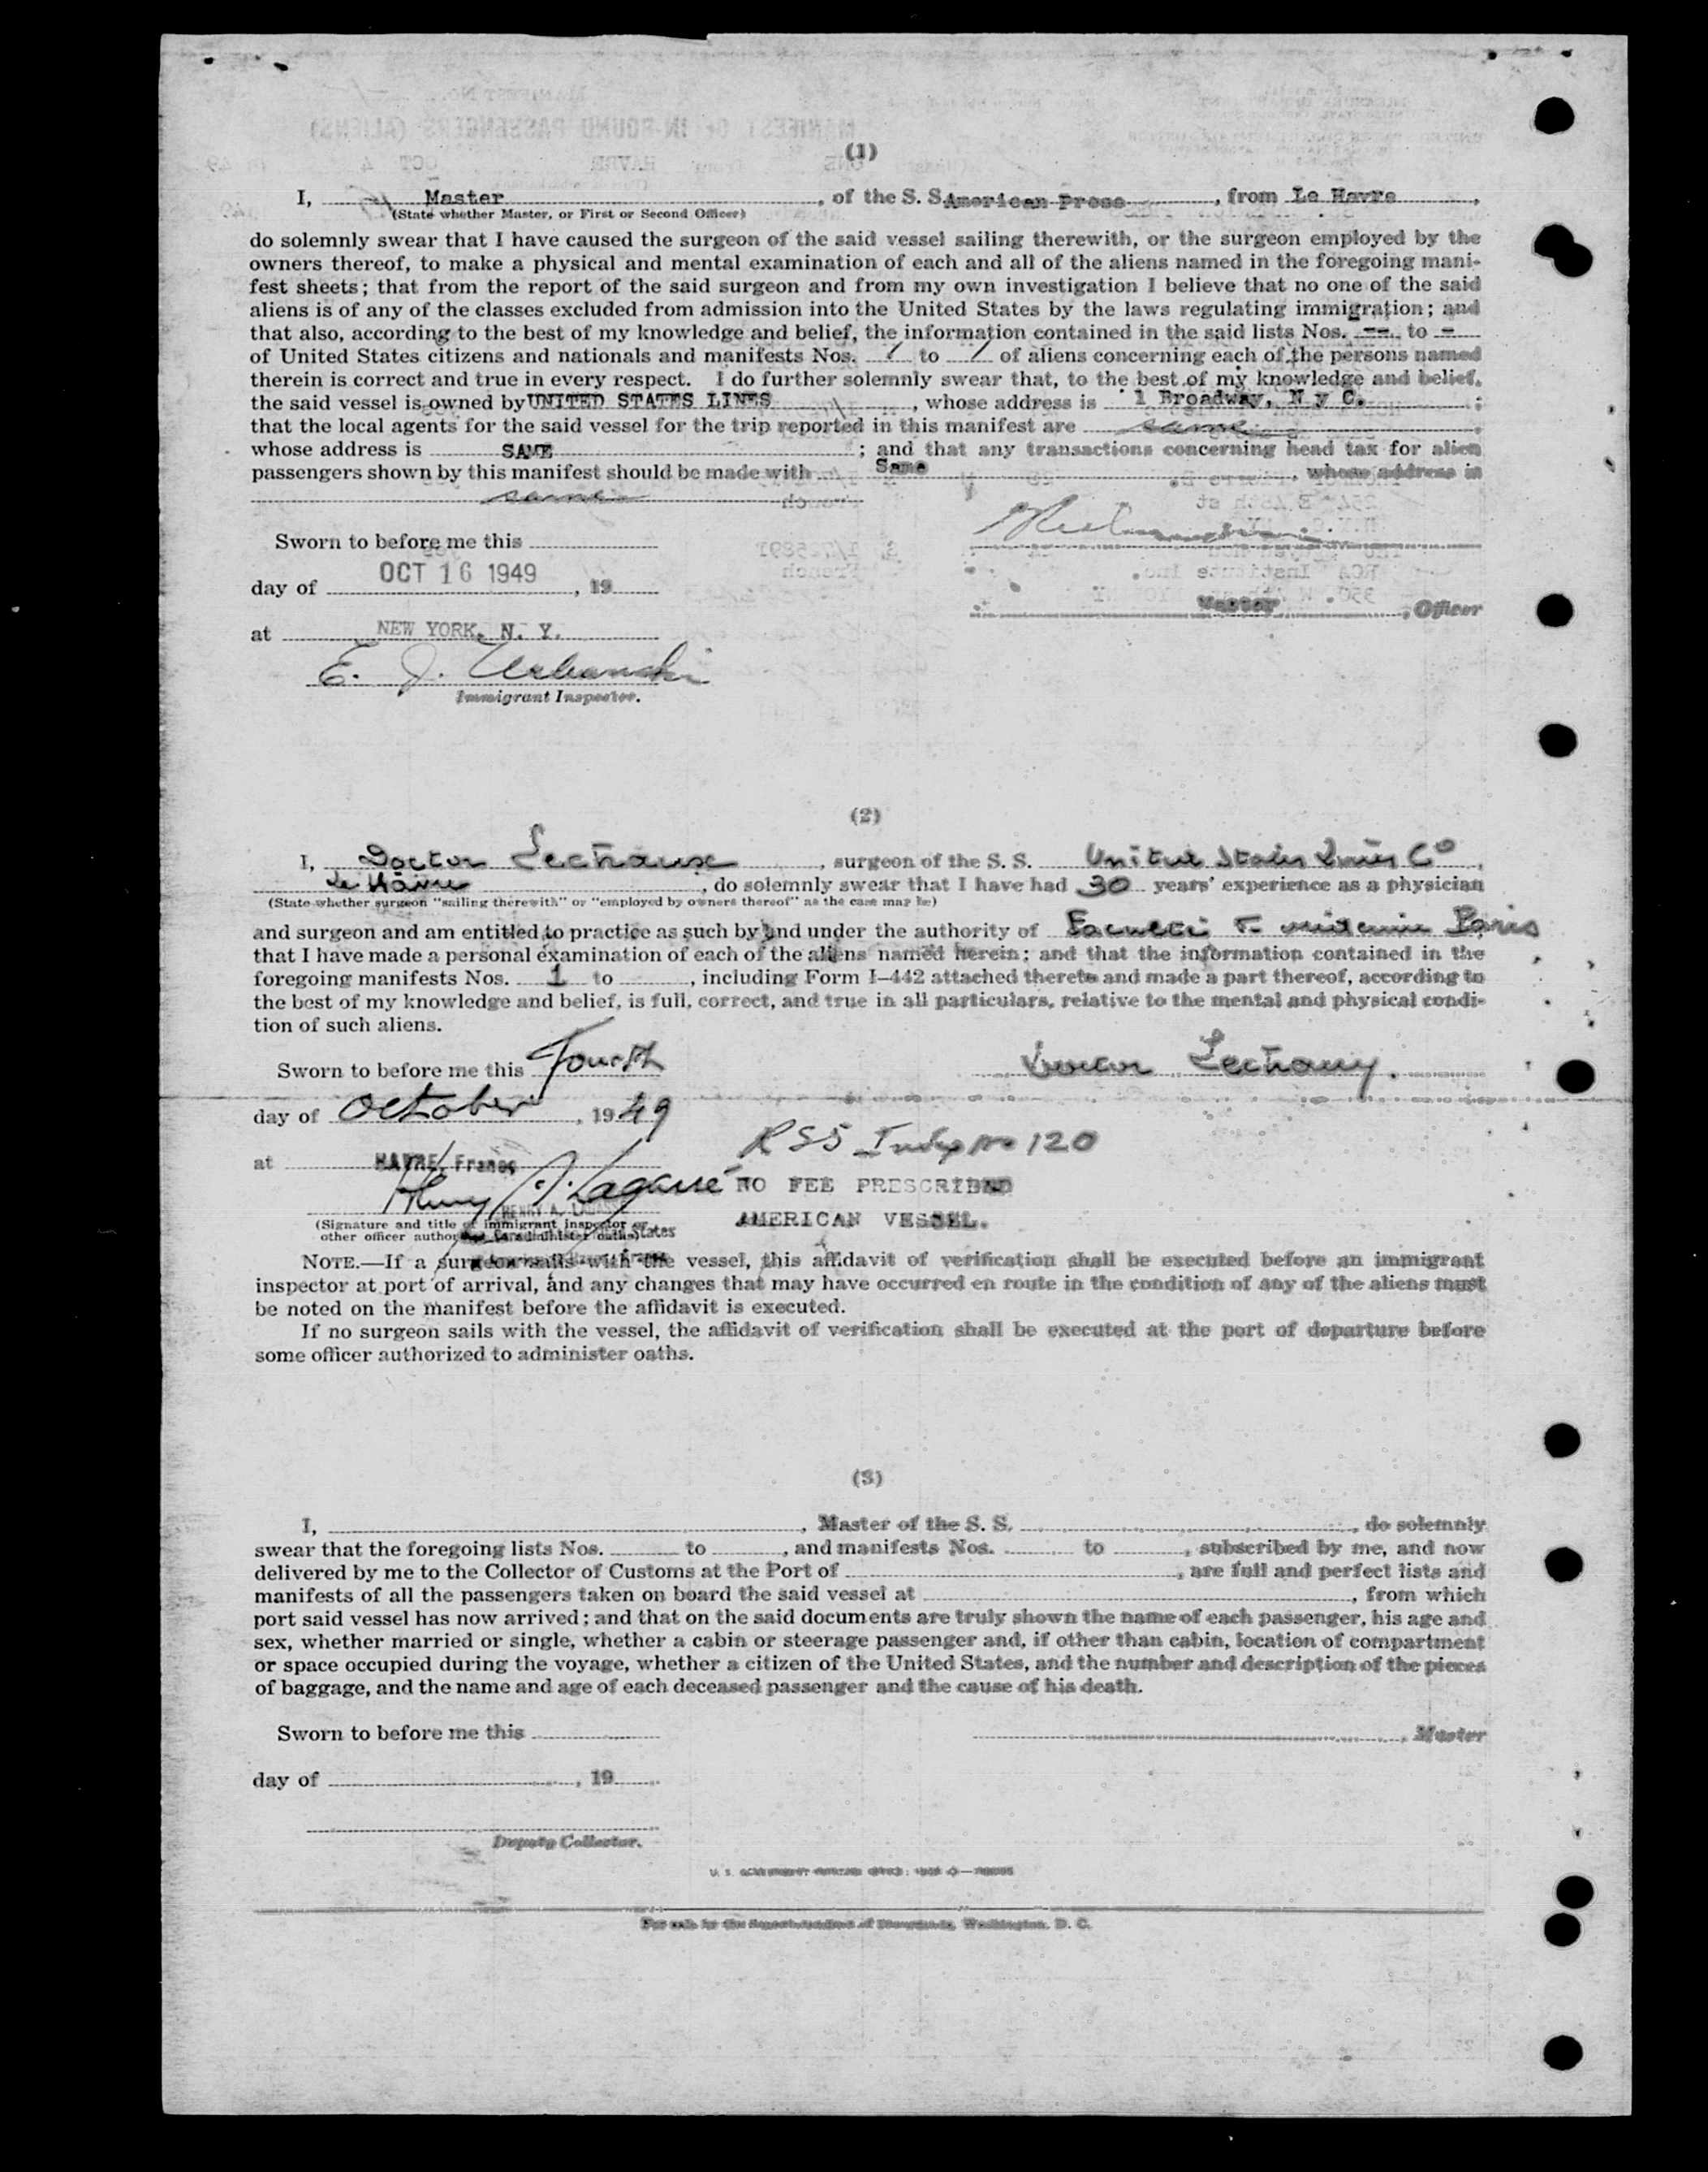 (1)
I, Master, of the S. S. American Press, from Le Havre,
(State whether Master, or First or Second Officer)
do solemnly swear that I have caused the surgeon of the said vessel sailing therewith, or the surgeon employed by the
owners thereof, to make a physical and mental examination of each and all of the aliens named in the foregoing mani-
fest sheets; that from the report of the said surgeon and from my own investigation I believe that no one of the said
aliens is of any of the classes excluded from admission into the United States by the laws regulating immigration; and
that also, according to the best of my knowledge and belief, the information contained in the said lists Nos. -- to -
of United States citizens and nationals and manifests Nos. 1 to 1 of aliens concerning each of the persons named
therein is correct and true in every respect. I do further solemnly swear that, to the best of my knowledge and belief,
the said vessel is owned by UNITED STATES LINES, whose address is 1 Broadway, N y C. ;
that the local agents for the said vessel for the trip reported in this manifest are same,
whose address is SAME ; and that any transactions concerning head tax for alien
passengers shown by this manifest should be made with Same, whose address is
same
Sworn to before me this
day of OCT 16 1949, 19
Master, Officer
at NEW YORK, N. Y.
E. J. Urbanski
Immigrant Inspector.
(2)
I, Doctor, surgeon of the S. S. United States Lines Co,
Le Havre, do solemnly swear that I have had 30 years' experience as a physician
(State whether surgeon "sailing therewith" or "employed by owners thereof" as the case may be)
and surgeon and am entitled to practice as such by and under the authority of Paris
that I have made a personal examination of each of the aliens named herein; and that the information contained in the
foregoing manifests Nos. 1 to , including Form I-442 attached thereto and made a part thereof, according to
the best of my knowledge and belief, is full, correct, and true in all particulars, relative to the mental and physical condi-
tion of such aliens.
Sworn to before me this Fourth
day of October, 1949
RSS Index No 120
at HAVRE, France
NO FEE PRESCRIBED
AMERICAN VESSEL.
(Signature and title of immigrant inspector or
other officer authorized to administer oaths)
NOTE.—If a surgeon sails with the vessel, this affidavit of verification shall be executed before an immigrant
inspector at port of arrival, and any changes that may have occurred en route in the condition of any of the aliens must
be noted on the manifest before the affidavit is executed.
If no surgeon sails with the vessel, the affidavit of verification shall be executed at the port of departure before
some officer authorized to administer oaths.
(3)
I, , Master of the S. S. , do solemnly
swear that the foregoing lists Nos. to , and manifests Nos. to , subscribed by me, and now
delivered by me to the Collector of Customs at the Port of , are full and perfect lists and
manifests of all the passengers taken on board the said vessel at , from which
port said vessel has now arrived; and that on the said documents are truly shown the name of each passenger, his age and
sex, whether married or single, whether a cabin or steerage passenger and, if other than cabin, location of compartment
or space occupied during the voyage, whether a citizen of the United States, and the number and description of the pieces
of baggage, and the name and age of each deceased passenger and the cause of his death.
Sworn to before me this
, Master
day of , 19
Deputy Collector.
U. S. GOVERNMENT PRINTING OFFICE
For sale by the Superintendent of Documents, Washington, D. C.